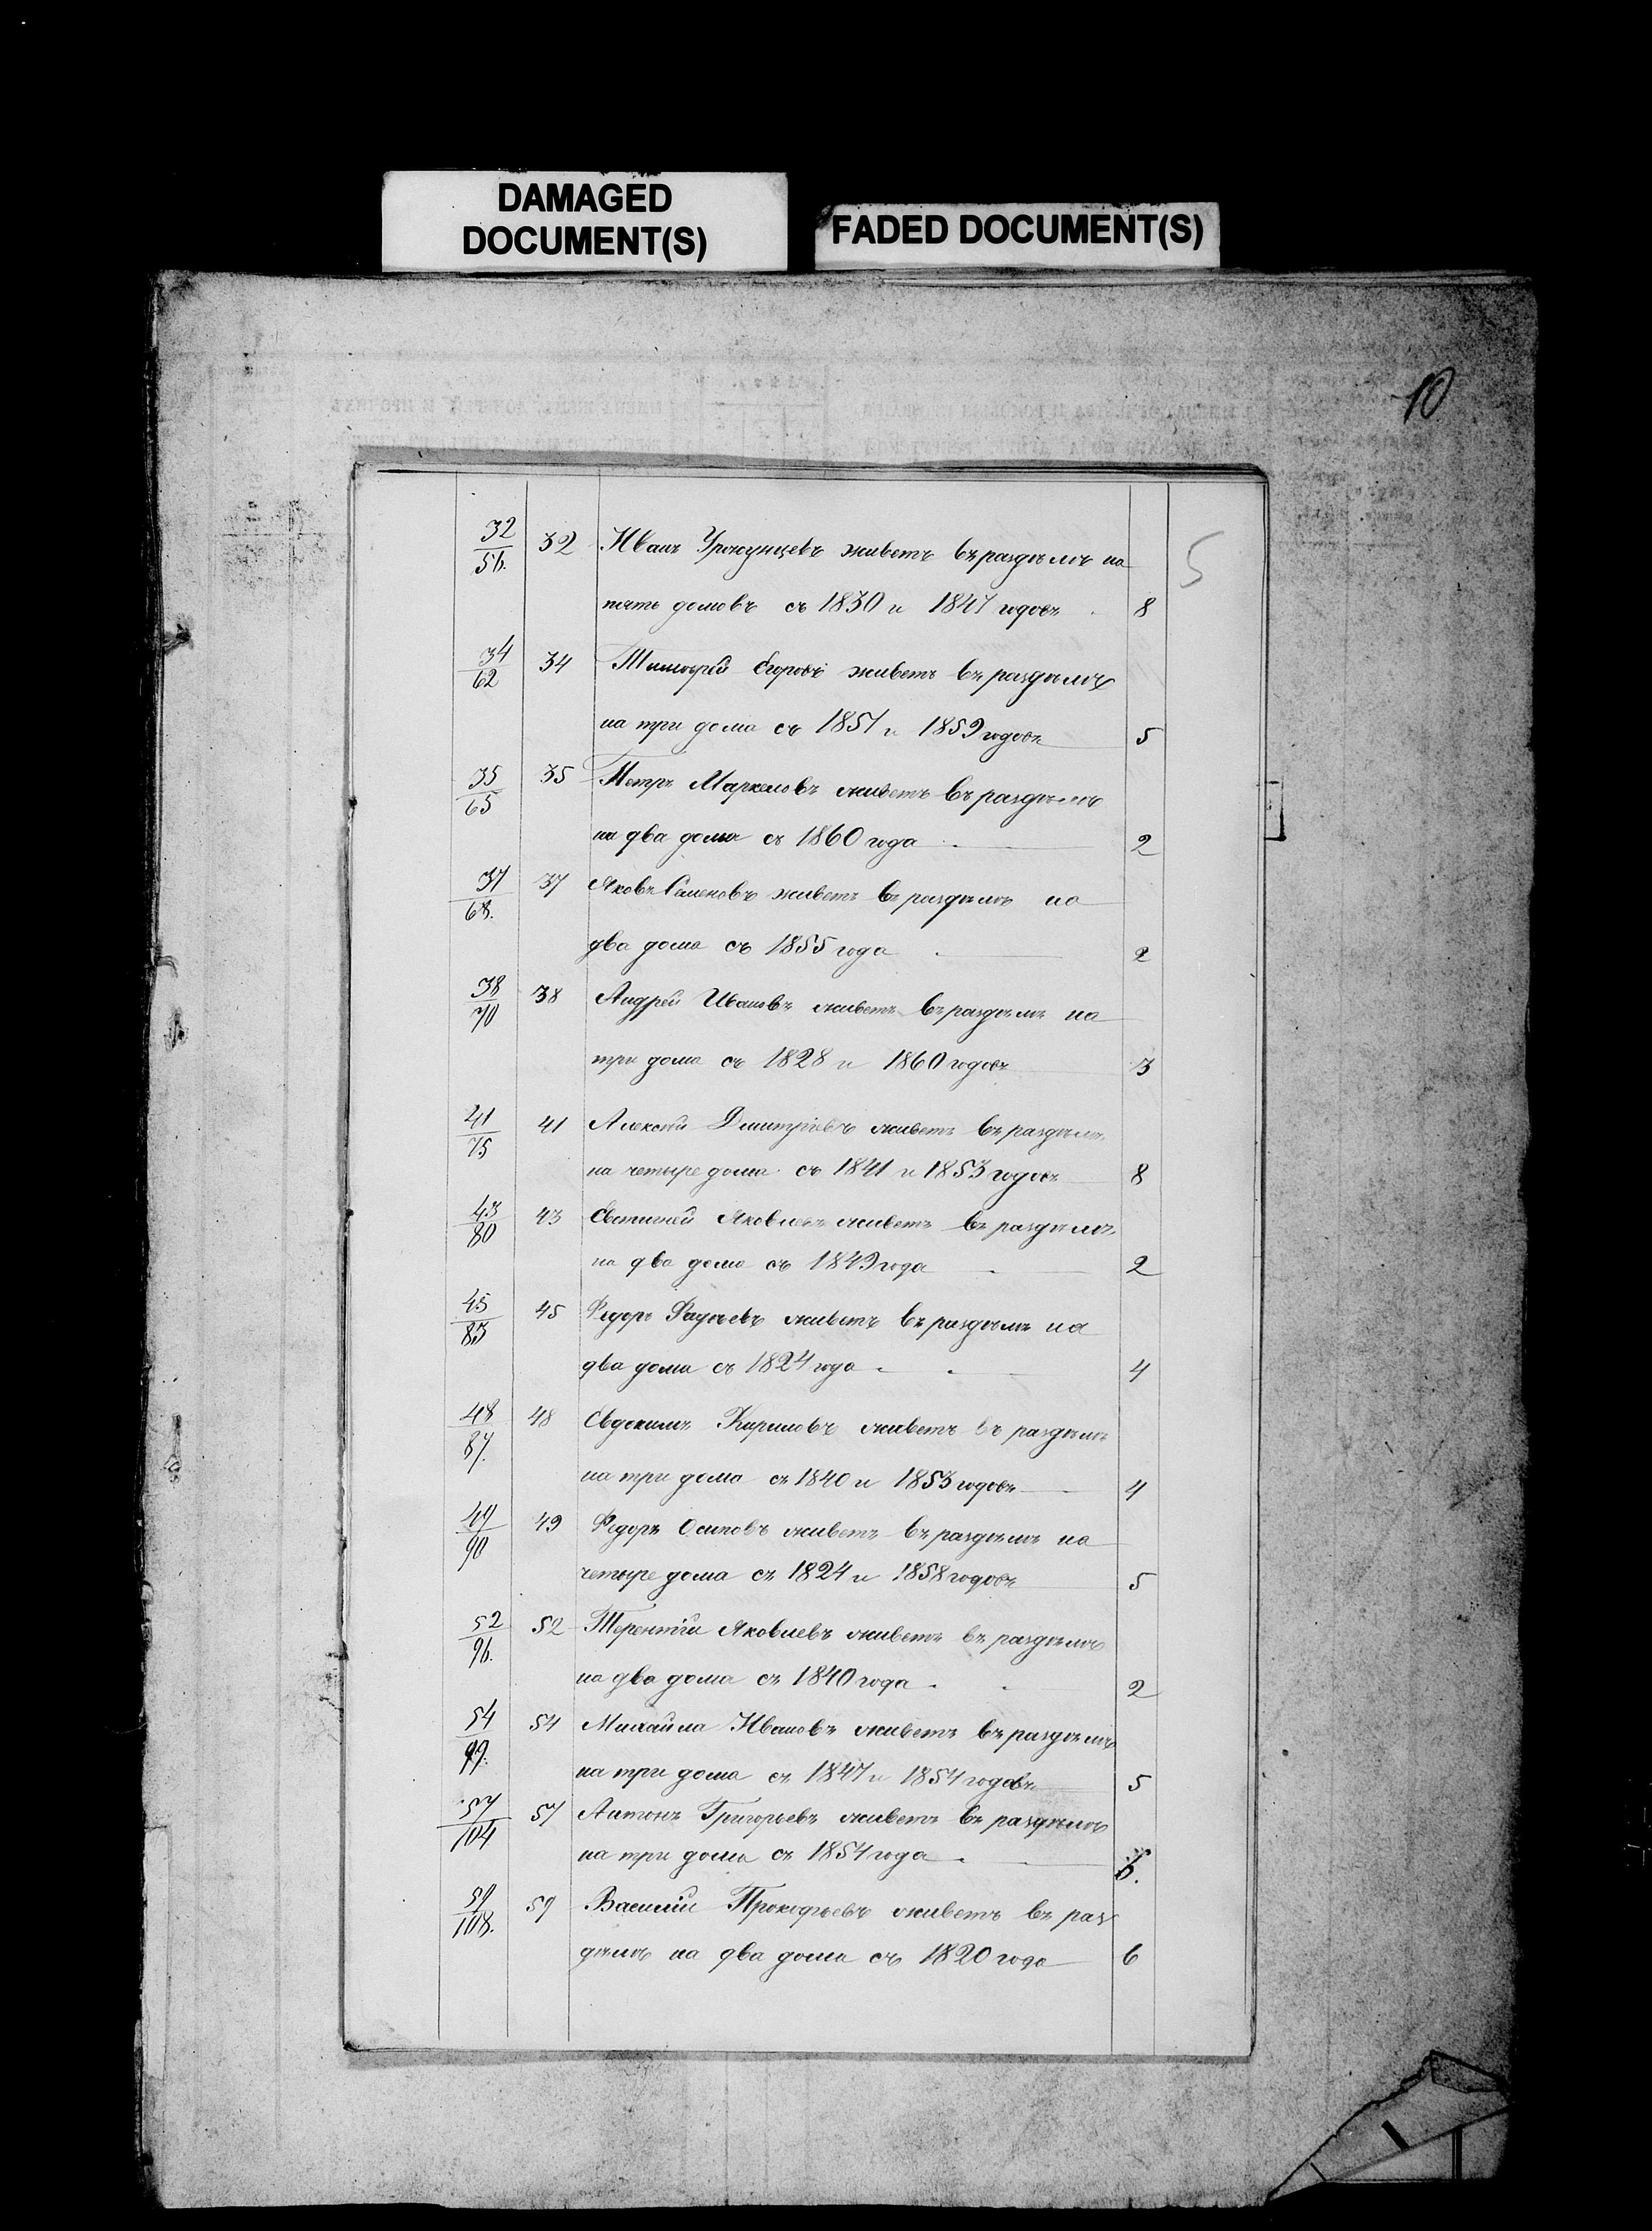 DAMAGED
DOCUMENT(S)
FADED DOCUMENT(S)
10
5
32/56. 32 Иванъ живетъ въ раздѣлѣ на
пять домовъ съ 1830 и 1847 годовъ 8
34/62 34 Тимофей Егоровъ живетъ въ раздѣлѣ
на три дома съ 1851 и 1859 годовъ 5
35/65 35 Петръ Маркеловъ живетъ въ раздѣлѣ
на два дома съ 1860 года 2
37/68. 37 Яковъ Семеновъ живетъ въ раздѣлѣ на
два дома съ 1855 года 2
38/70 38 Андрей Ивановъ живетъ въ раздѣлѣ на
три дома съ 1828 и 1860 годовъ 3
41/75 41 Алексѣй Дмитріевъ живетъ въ раздѣлѣ
на четыре дома съ 1841 и 1853 годовъ 8
43/80 43 Евстигней Яковлевъ живетъ въ раздѣлѣ
на два дома съ 1849 года 2
45/83 45 Федоръ Фадѣевъ живетъ въ раздѣлѣ на
два дома съ 1824 года 4
48/87. 48 Евдокимъ Кириловъ живетъ въ раздѣлѣ
на три дома съ 1840 и 1853 годовъ 4
49/90 49 Федоръ Осиповъ живетъ въ раздѣлѣ на
четыре дома съ 1824 и 1858 годовъ 5
52/96. 52 Терентій Яковлевъ живетъ въ раздѣлѣ
на два дома съ 1840 года 2
54/99. 54 Михайла Ивановъ живетъ въ раздѣлѣ
на три дома съ 1847 и 1854 годовъ 5
57/104 57 Антонъ Григорьевъ живетъ въ раздѣлѣ
на три дома съ 1854 года
59/108. 59 Василій Прокофьевъ живетъ въ раз
дѣлѣ на два дома съ 1820 года 6